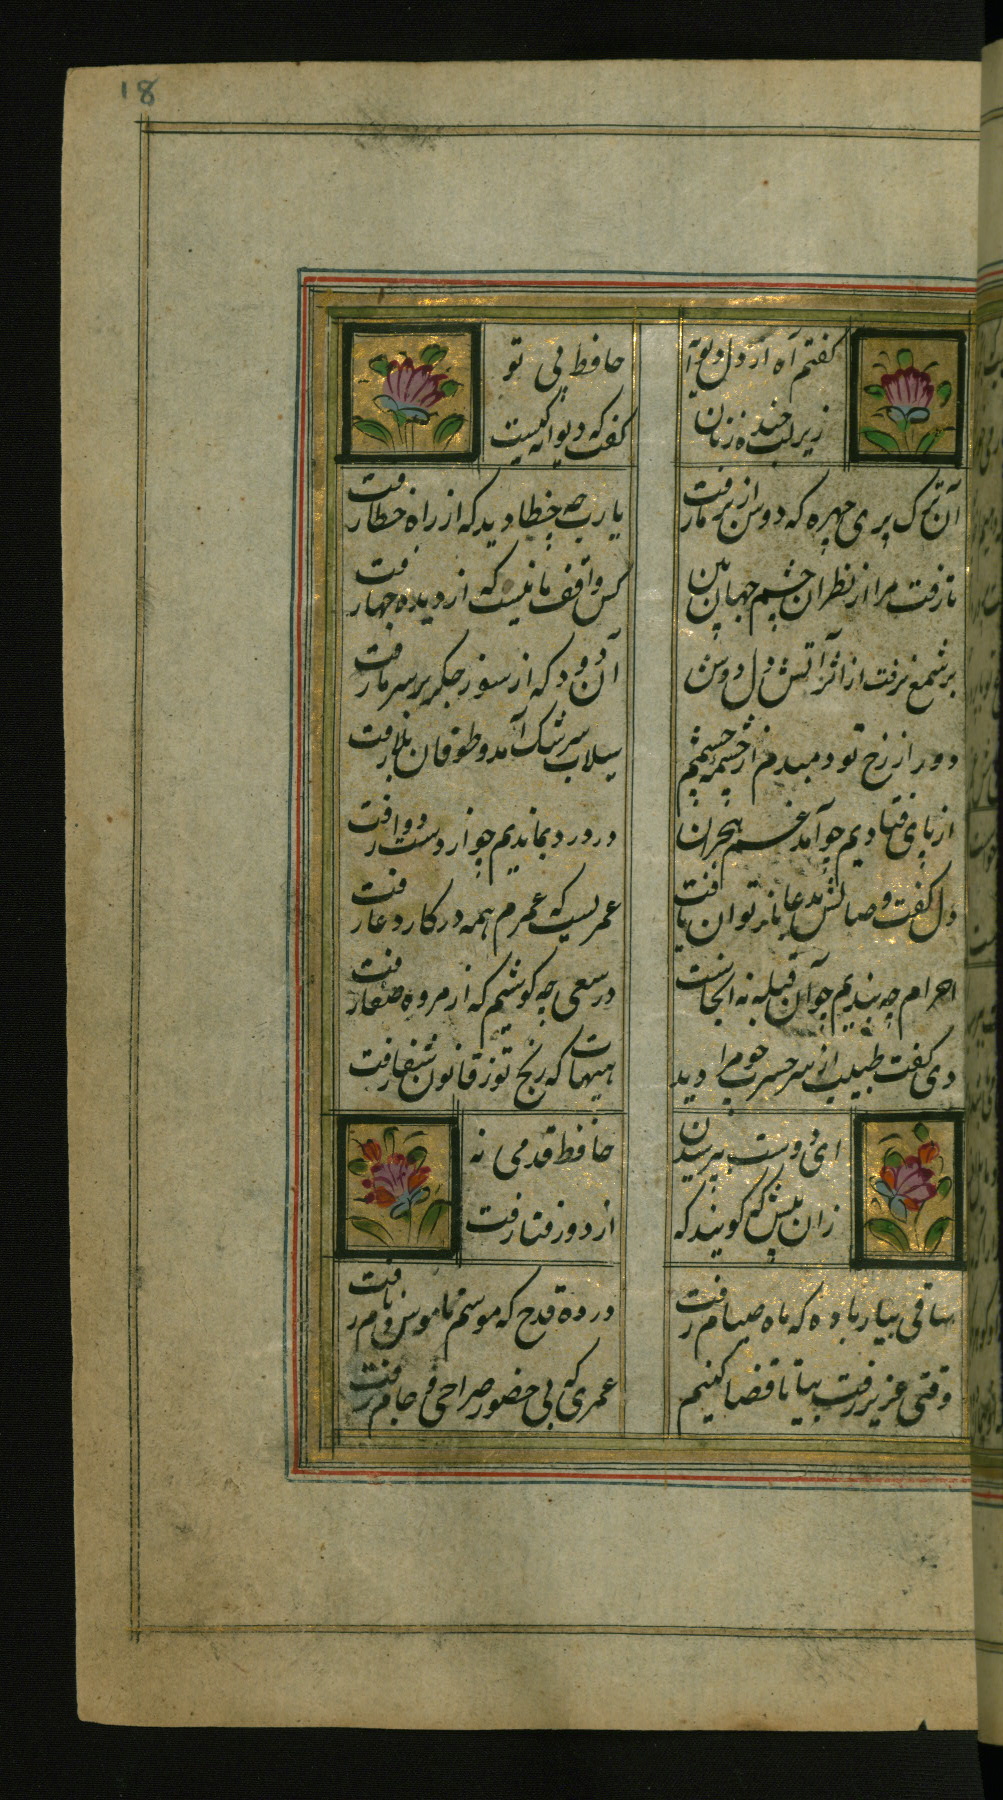 18
گفتم آه از دل دیوانه
حافظ بی تو
زیر لب خنده زنان
گفت که دیوانه کیست
آن ترک پری چهره که دوش از بر ما رفت
یا رب چه خطا دید که از راه خطا رفت
تا رفت مرا از نظر آن چشم جهان بین
کس واقف ما نیست که از دیده چها رفت
بر شمع نرفت از اثر آتش دل دوش
آن دود که از سوز جگر بر سر ما رفت
دور از رخ تو دمبدم از چشمه چشمم
سیلاب سرشک آمد و طوفان بلا رفت
از پای فتادیم چو آمد غم هجران
در درد بماندیم چو از دست دوا رفت
دل گفت وصالش بدعا باز توان یافت
عمریست که عمرم همه در کار دعا رفت
احرام چه بندیم چو آن قبله نه اینجاست
در سعی چه کوشیم که از مروه صفا رفت
دی گفت طبیب از سر حسرت چو مرا دید
هیهات که رنج تو ز قانون شفا رفت
ای دوست بپرسیدن
حافظ قدمی نه
زان پیش که گویند که
از دور فنا رفت
ساقی بیار باده که ماه صیام رفت
در ده قدح که موسم ناموس و نام رفت
وقتی عزیز رفت بیا تا قضا کنیم
عمری که بی حضور صراحی و جام رفت